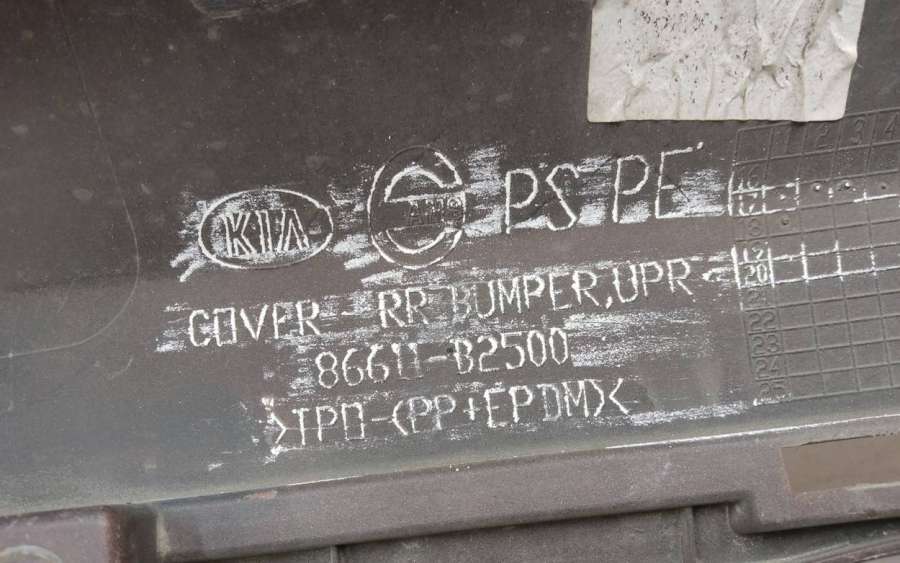 KIA PS PE
COVER - RR BUMPER, UPR
86611-B2500
>TPO-(PP+EPDM)<
1 2 3 4
16
17
19
20
21
22
23
24
25